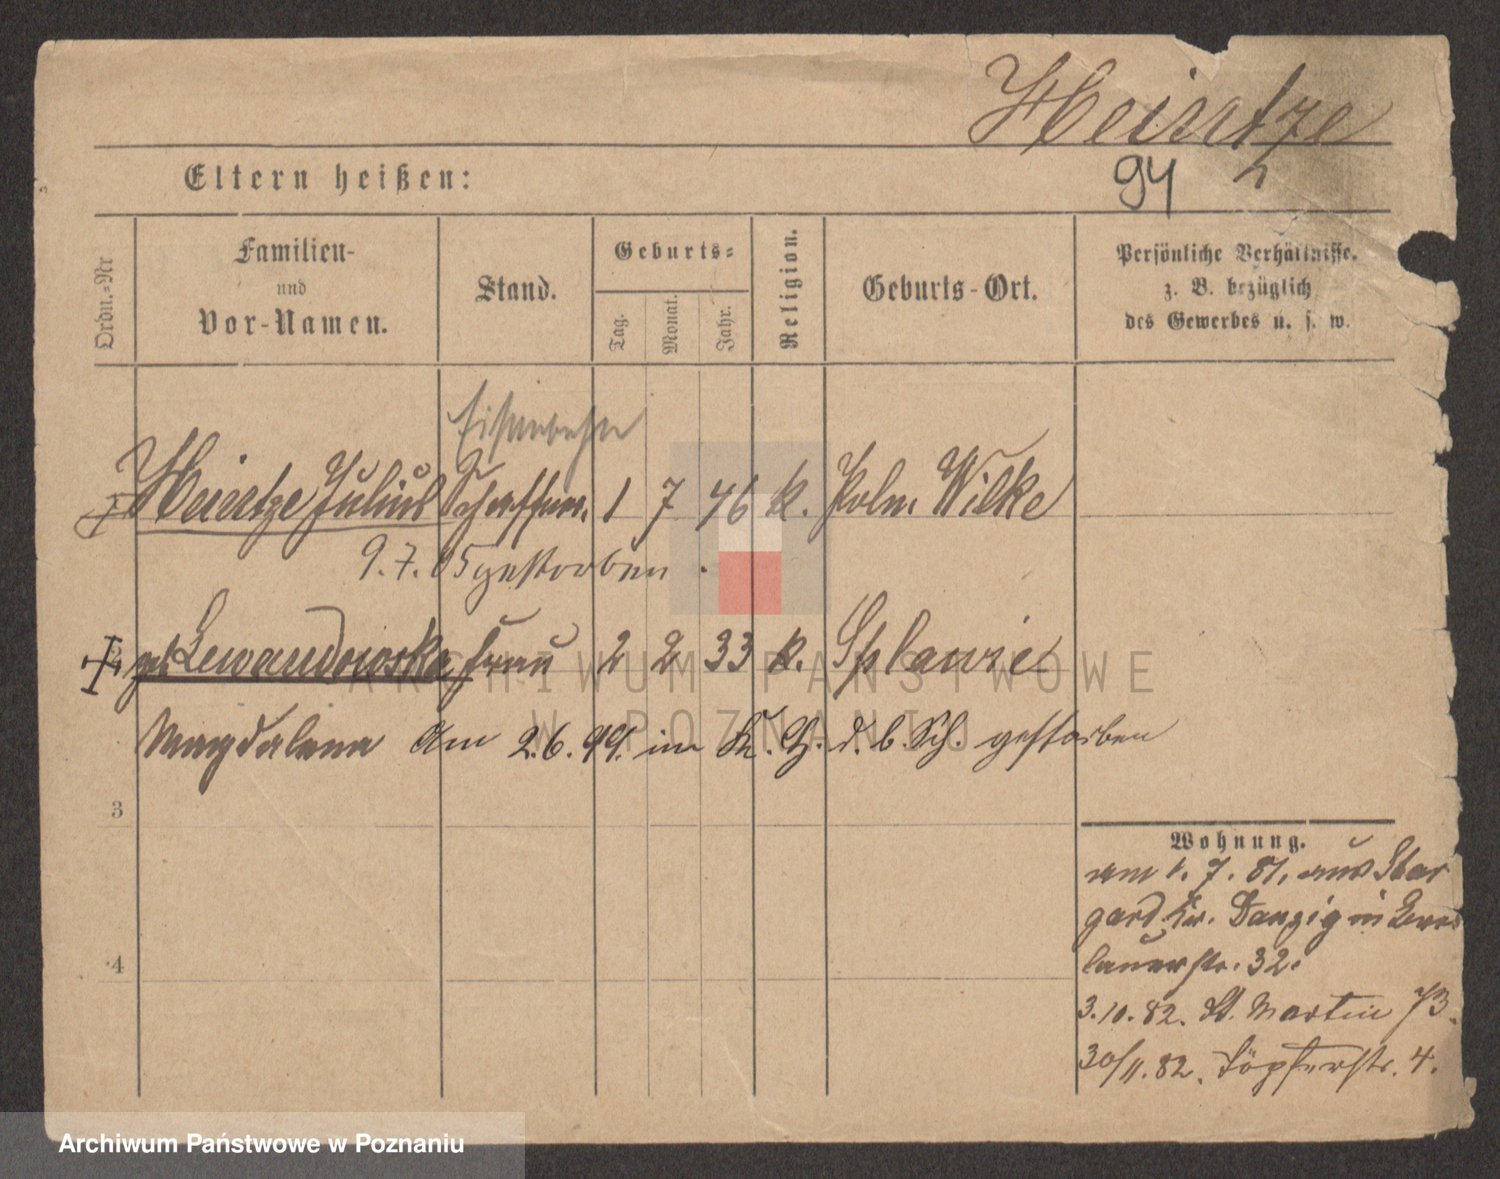 Heintze
94
Eltern heißen:
Ordn.-Nr
Familien-
und
Vor-Namen.
Stand.
Geburts-
Tag.
Monat.
Jahr.
Religion.
Geburts-Ort.
Persönliche Verhältnisse.
z. B. bezüglich
des Gewerbes u. s. w.
Eisenbahn
Heintze Julius Schaffner. 1 7 46 k. Poln. Wilke
9.7.05 gestorben.
geb Lewandowska Frau 2 2 33 k. Splawie
Magdalena Am 2.6.99. im K. H. d. b. Sch. gestorben
3
4
Wohnung.
am 1.7.81. aus Star
gard Kr. Danzig in Bres
lauerstr. 32.
3.10.82. St. Martin 73.
30/11.82. Töpferstr. 4.
ARCHIWUM PAŃSTWOWE
W POZNANIU
Archiwum Państwowe w Poznaniu